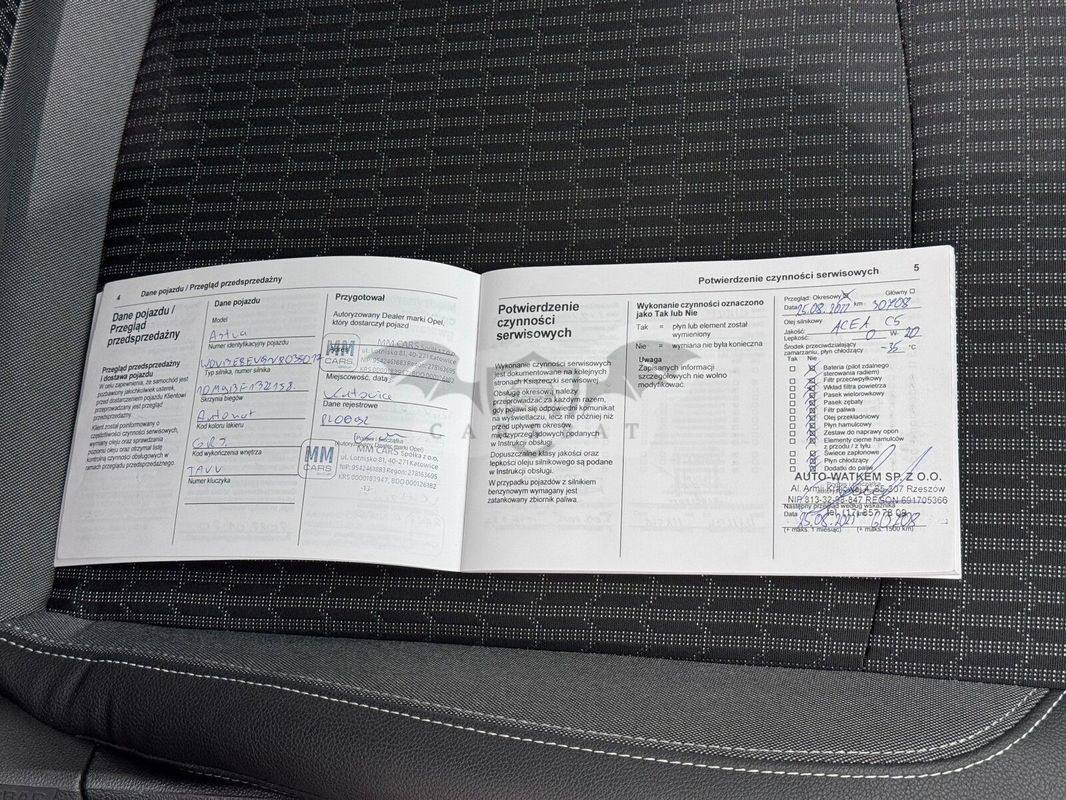 4 Dane pojazdu / Przegląd przedsprzedażny
Dane pojazdu /
Przegląd
przedsprzedażny
Przegląd przedsprzedażny
i dostawa pojazdu
W celu zapewnienia, że samochód jest
pozbawiony jakichkolwiek usterek,
przed dostarczeniem pojazdu Klientowi
przeprowadzany jest przegląd
przedsprzedażny.
Klient został poinformowany o
częstotliwości czynności serwisowych,
wymianie oleju oraz sprawdzaniu
poziomu oleju oraz otrzymał listę
kontrolną czynności obsługowych w
ramach przeglądu przedsprzedażnego.
Dane pojazdu
Model
Astra
Numer identyfikacyjny pojazdu
Typ silnika, numer silnika
Skrzynia biegów
Automat
Kod koloru lakieru
Kod wykończenia wnętrza
TAVV
Numer kluczyka
Przygotował
Autoryzowany Dealer marki Opel,
który dostarczył pojazd
MM
CARS
MM CARS
ul. Lotnisko 81, 40-271 Katowice
NIP: 9542461883 Regon: 278163695
Miejscowość, data
Katowice
Dane rejestrowe
Podpis i pieczątka
(Autoryzowany Dealer marki Opel)
MM
CARS
MM CARS spółka z o.o.
ul. Lotnisko 81, 40-271 Katowice
NIP: 9542461883 Regon: 278163695
KRS 0000183947, BDO 000126182
-13-
CAR BAT
Potwierdzenie czynności serwisowych 5
Potwierdzenie
czynności
serwisowych
Wykonanie czynności serwisowych
jest dokumentowane na kolejnych
stronach Książeczki serwisowej.
Obsługę okresową należy
przeprowadzać za każdym razem,
gdy pojawi się odpowiedni komunikat
na wyświetlaczu, lecz nie później niż
przed upływem okresów
międzyprzeglądowych podanych
w Instrukcji obsługi.
Dopuszczalne klasy jakości oraz
lepkości oleju silnikowego są podane
w Instrukcji obsługi.
W przypadku pojazdów z silnikiem
benzynowym wymagany jest
zatankowany zbiornik paliwa.
Wykonanie czynności oznaczono
jako Tak lub Nie
Tak = płyn lub element został
wymieniony
Nie = wymiana nie była konieczna
Uwaga
Zapisanych informacji
szczegółowych nie wolno
modyfikować.
Przegląd: Okresowy Główny
Data 25.08.2022 km 30708
Olej silnikowy
Jakość: ACEA C5
Lepkość: 0 W- 20
Środek przeciwdziałający
zamarzaniu, płyn chłodzący -35 °C
Tak Nie
Bateria (pilot zdalnego
sterowania radiem)
Filtr przeciwpyłkowy
Wkład filtra powietrza
Pasek wielorowkowy
Pasek zębaty
Filtr paliwa
Olej przekładniowy
Płyn hamulcowy
Zestaw do naprawy opon
Elementy cierne hamulców
z przodu / z tyłu
Świece zapłonowe
Płyn chłodzący
Dodatki do paliw
AUTO-WATKEM SP. Z O.O.
35-307 Rzeszów
REGON 691705366
Następny przegląd według wskaźnika
Data
(+ maks. 1 miesiąc) (+ maks. 1500 km)